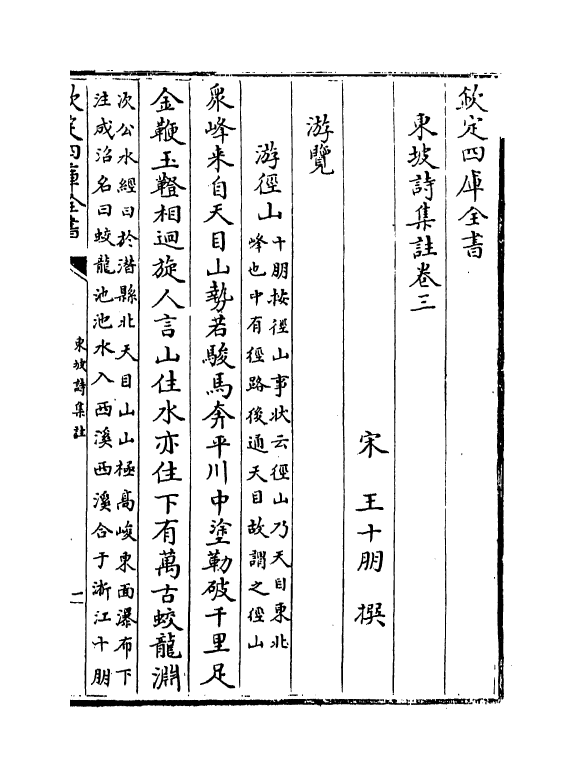 欽定四庫全書
東坡詩集註卷三
宋 王十朋 撰
游覽
游徑山十朋按徑山事狀云徑山乃天目東北
峰也中有徑路後通天目故謂之徑山
衆峰来自天目山勢若駿馬奔平川中塗勒破千里足
金鞭玉鞚相迴旋人言山住水亦住下有萬古蛟龍淵
次公水經曰於潛縣北天目山山極高峻東面瀑布下
注成沼名曰蛟龍池池水入西溪西溪合于浙江十朋
欽定四庫全書
東坡詩集註